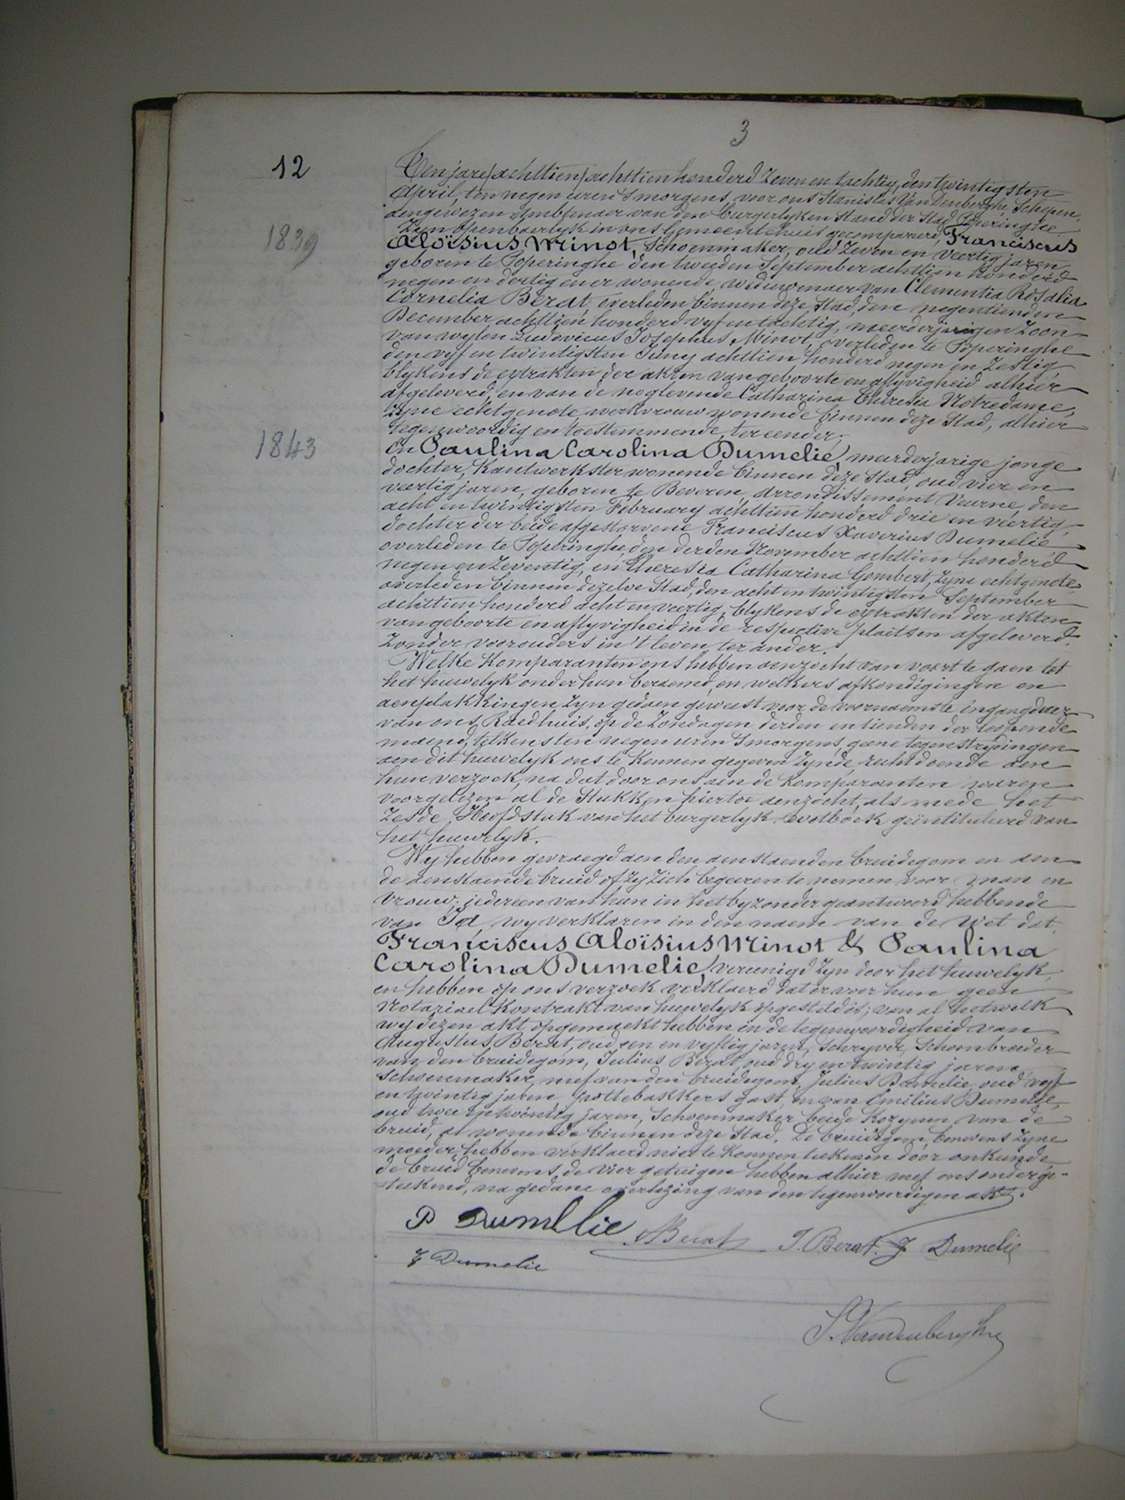 3
12
Ten jare achttien achttien honderd zeven en tachtig, den twintigsten
April, ten negen uren s morgens, voor ons Stanislas Van Denberghe Schepen,
aengewezen Ambtenaer van den burgerlyken stand der Stad Poperinghe,
zyn openbaerlyk in ons Gemeentehuis gecompareerd, Franciscus
1839
Aloïsius Minot, schoenmaker, oud zeven en veertig jaren
geboren te Poperinghe den tweeden September achttien honderd
negen en dertig en er wonende, weduwenaer van Clementia Rosalia
Cornelia Berat, overleden binnen deze Stad, den negentienden
December achttien honderd vyf en tachtig, meerderjarigen zoon
van wylen Ludovicus Josephus Minot, overleden te Poperinghe
den vyf en twintigsten Juny achttien honderd negen en zestig
blykens de extrakten der akten van geboorte en aflyvigheid alhier
afgeleverd, en van de noglevende Catharina Theresia Notredame,
zyne echtgenote, werkvrouw wonende binnen deze Stad, alhier
tegenwoordig en toestemmende, ter eender.
1843
En Paulina Carolina Dumelie, meerderjarige jonge
dochter, kantwerkster wonende binnen deze Stad, oud vier en
veertig jaren, geboren te Beveren, Arrondissement Veurne, den
acht en twintigsten February achttien honderd drie en viertig,
dochter der beide afgestorvene Franciscus Xaverius Dumelie
overleden te Poperinghe, den derden November achttien honderd
negen en zeventig, en Theresia Catharina Gombert, zyne echtgenote,
overleden binnen dezelve Stad, den acht en twintigsten September
achttien honderd acht en veertig, blykens de extrakten der akten
van geboorte en aflyvigheid in de respective plaetsen afgeleverd.
zonder voorouders in 't leven, ter ander.
Welke komparanten ons hebben aenzocht van voort te gaen tot
het huwelyk onder hun beraemd, en welkers afkondigingen en
aenplakkingen zyn gedaen geweest voor de voornaemste ingangdeur
van ons Raedhuis, op de zondagen derden en tienden der loopende
maend, telkens ten negen uren s morgens, geene tegenstrydingen
aen dit huwelyk ons te kennen gegeven zynde, rechtdoende aen
hun verzoek, na dat door ons aen de komparanten waren
voorgelezen al de stukken hiertoe aenzocht, als mede het
zesde Hoofdstuk van het burgerlyk wetboek geïntituleerd van
het huwelyk.
Wy hebben gevraegd aen den aenstaenden bruidegom en aen
de aenstaende bruid of zy zich begeeren te nemen voor man en
vrouw; jedereen van hun in het byzonder geantwoord hebbende
van Ja, wy verklaren in den naem van de Wet dat,
Franciscus Aloïsius Minot & Paulina
Carolina Dumelie, vereenigd zyn door het huwelyk,
en hebben op ons verzoek verklaerd dat er voor hun geen
Notariael Kontrakt van huwelyk opgesteld is; van al hetwelk
wy dezen akt opgemaekt hebben in de tegenwoordigheid van
Augustus Berat, oud een en vyftig jaren, schryver, schoonbroeder
van den bruidegom, Julius Berat, oud dry en twintig jaren,
schoenmaker, neef van den bruidegom, Julius Dumelie, oud vyf
en twintig jaren, pottebakkers gast en van Emilius Dumelie,
oud twee en twintig jaren, schoenmaker, beide Kozynen van de
bruid, al wonende binnen deze Stad. De bruidegom benevens zyne
moeder hebben verklaerd niet te konnen teekenen door onkunde,
de bruid benevens de vier getuigen hebben alhier met ons onderge-
teekend, na gedane overlezing van den tegenwoordigen akt.
P Dumelie A Berat J. Berat. J Dumelie
J Dumelie
S. Vandenberghe